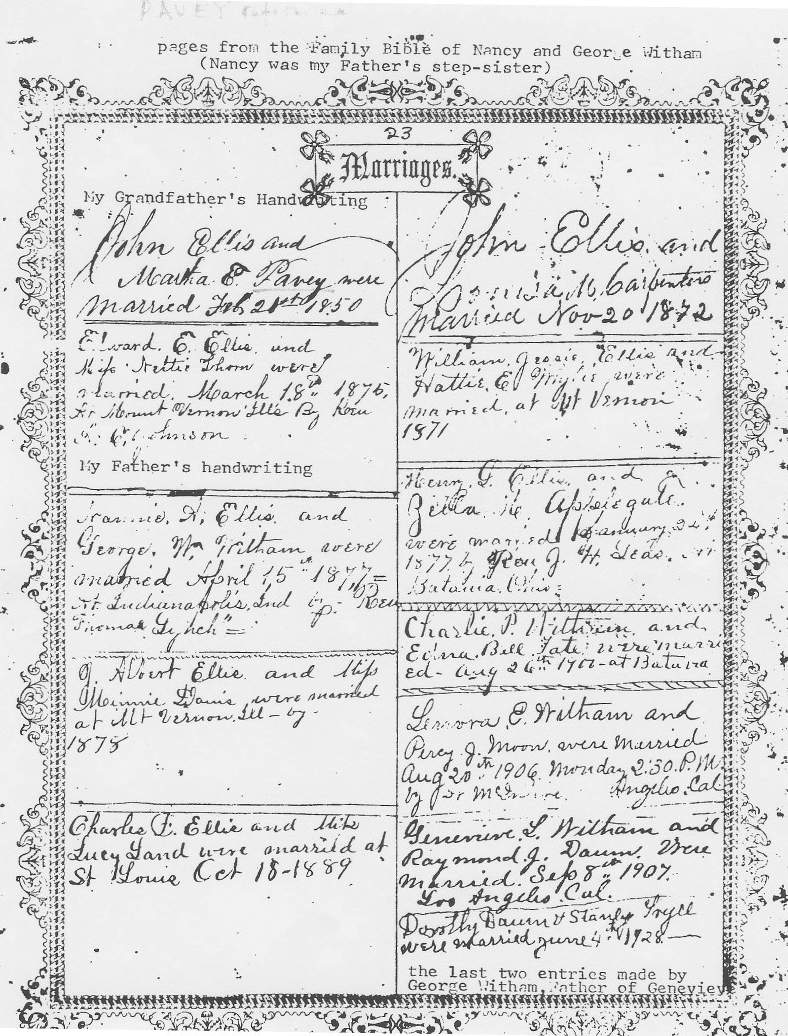 PAVEY
pages from the Family Bible of Nancy and George Witham
(Nancy was my Father's step-sister)
23
Marriages.
My Grandfather's Handwriting
John Ellis and
Martha E. Pavey were
married Feb 21st 1850
Edward. E. Ellis. and
Miss Nettie Thorn were
married. March 18th 1875,
At Mount Vernon Ills By Rev
Johnson
My Father's handwriting
A. Ellis and
George. W. Witham were
married April 15th 1877=
At Indianapolis, Ind by Rev
Thomas Lynch"=
J. Albert Ellis and Miss
Minnie Davis were married
at Mt Vernon, Ill - by
1878
Charles F. Ellis and Miss
Lucy Land were married at
St Louis Oct 18-1889
John Ellis. and
M. Carpenters
married Nov 20 1872
William, Jessie, Ellis and
Hattie. E. were
married, at Mt Vernon
1871
Henry. G. Ellis. and
Zella. K. Applegate.
were married January 24th
1877 by Rev J. H. Leas. In
Batavia. Ohio=
Charlie. P. Witham. and
Edna. Bell Tate were marri
ed- Aug 26th at Batavia
Lenora E. Witham and
Percy J. Moon. were married
Aug 20th 1906. Monday 2:30. P.M.
by Angelio. Cal
Genevieve L. Witham and
Raymond J. Daum. Were
married. Sep 8th 1907.
Los Angelio. Cal.
Dorothy Daum & Stanley
were married June 4th 1928—
the last two entries made by
George Witham, Father of Geneviev